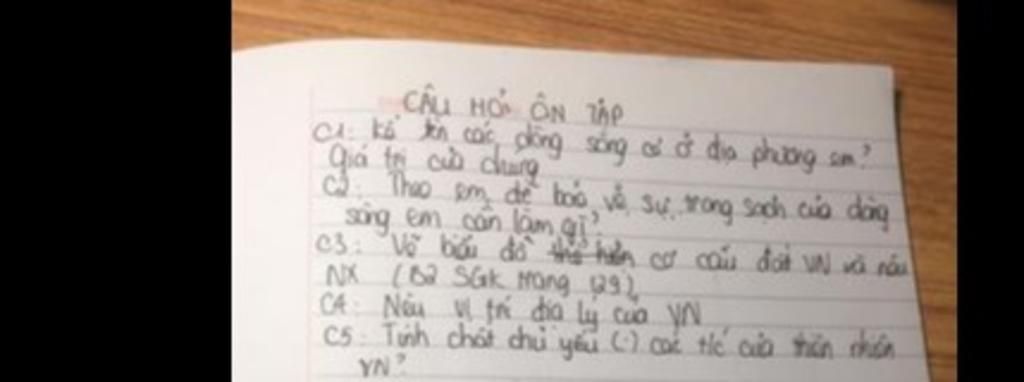 CÂU HỎI ÔN TẬP
C1: Kể tên các dòng sông có ở địa phương em?
Giá trị của chúng
C2: Theo em, để bảo vệ sự trong sạch của dòng
sông em cần làm gì?
C3: Vẽ biểu đồ thể hiện cơ cấu đất VN và nêu
NX (B2 SGK trang 129)
C4: Nêu vị trí địa lý của VN
C5: Tính chất chủ yếu (.) các t/c của thiên nhiên
VN?